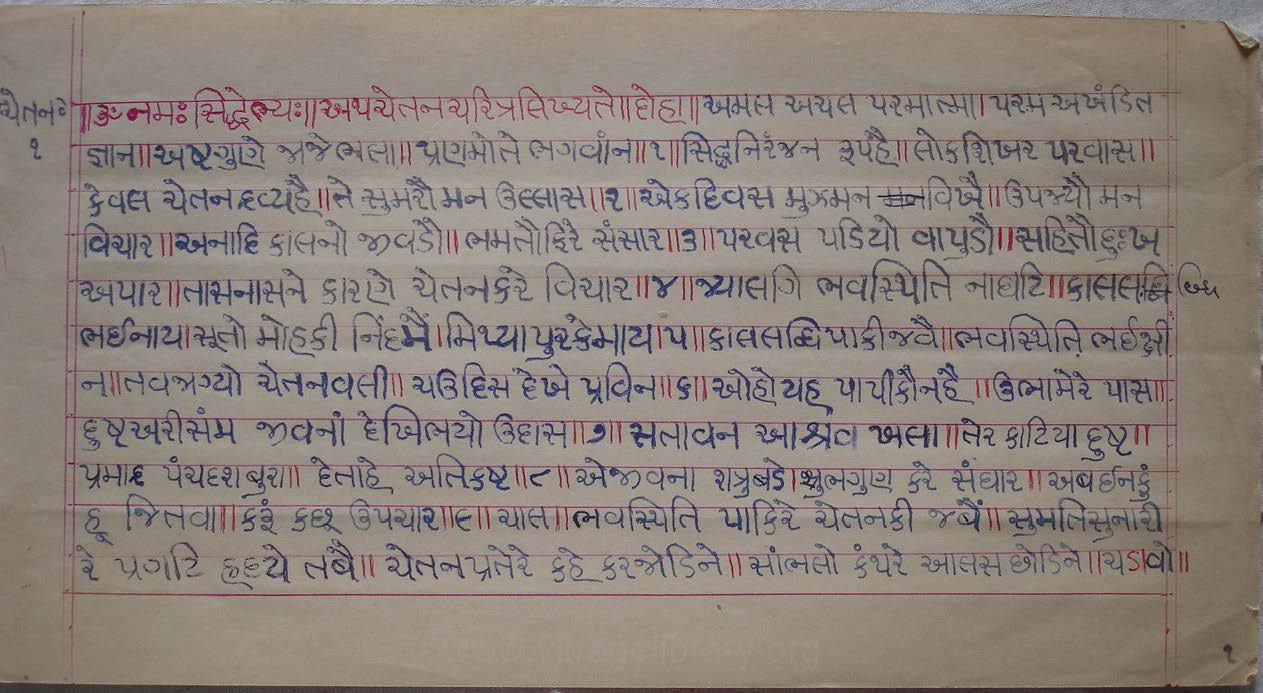 ચેતન૨૦
૧
॥ૐ નમઃ સિદ્ધેભ્યઃ॥અથચેતનચરિત્રલિખ્યતે॥દોહા॥ અમલ અચલ પરમાત્મા॥ પરમ અખંડિત
જ્ઞાન॥અષ્ટગુણે જાજે ભલા॥ પ્રણમોતે ભગવાંન॥૧॥ સિદ્ધનિરંજન રૂપહૈ॥ લોકશિખર પરવાસ॥
કેવલ ચેતન દ્રવ્યહૈ॥તે સુમરૌ મન ઉલ્લાસ॥૨॥ એકદિવસ મુઝમન વિખૈ॥ ઉપજ્યૌ મન
વિચાર॥અનાદિ કાલનો જીવડૌ॥ ભમતૌફિરે સંસાર॥૩॥ પરવસ પડિયો વાપુડૌ॥સહિતૌદુઃખ
અપાર॥તાસનાસને કારણે ચેતનકરે વિચાર॥૪॥ જ્યાલગિ ભવસ્થિતિ નાઘટિ॥કાલલબ્ધિ બ્ધિ
ભઈનાય॥સૂતો મોહકી નિંદમૈં॥મિથ્યાપુરકેમાય॥૫॥ કાલલબ્ધિપાકીજવૈ॥ભવસ્થિતિ ભઈક્ષી
ન॥તવજાગ્યો ચેતનવલી॥ ચઉદિસ દેખે પ્રવિન॥૬॥ ઓહોયહ પાપીકૌનહૈ ॥ઉભામેરે પાસ॥
દુષ્ટઅરીસંમ જીવનાં દેખિભયો ઉદાસ॥૭॥ સતાવન આશ્રવ ખલા॥તેર કાટિયા દુષ્ટ॥
પ્રમાદ પંચદશબુરા॥ દેતાહે અતિકષ્ટ॥૮॥એજીવના શત્રુબડે॥શુભગુણ કરે સંઘાર॥ અબઈનકું
હૂ જિતવા॥કરું કછૂ ઉપચાર॥૯॥ ચાલ॥ભવસ્થિતિ પાકિરે ચેતનકી જબૈં॥ સુમતિસુનારી
રે પ્રગટિ હૃદયે તબૈ॥ ચેતનપ્રતેરે કહે કરજોડિને॥ સાંભલો કંથરે આલસ છોડિને॥ચડાવો॥
૧